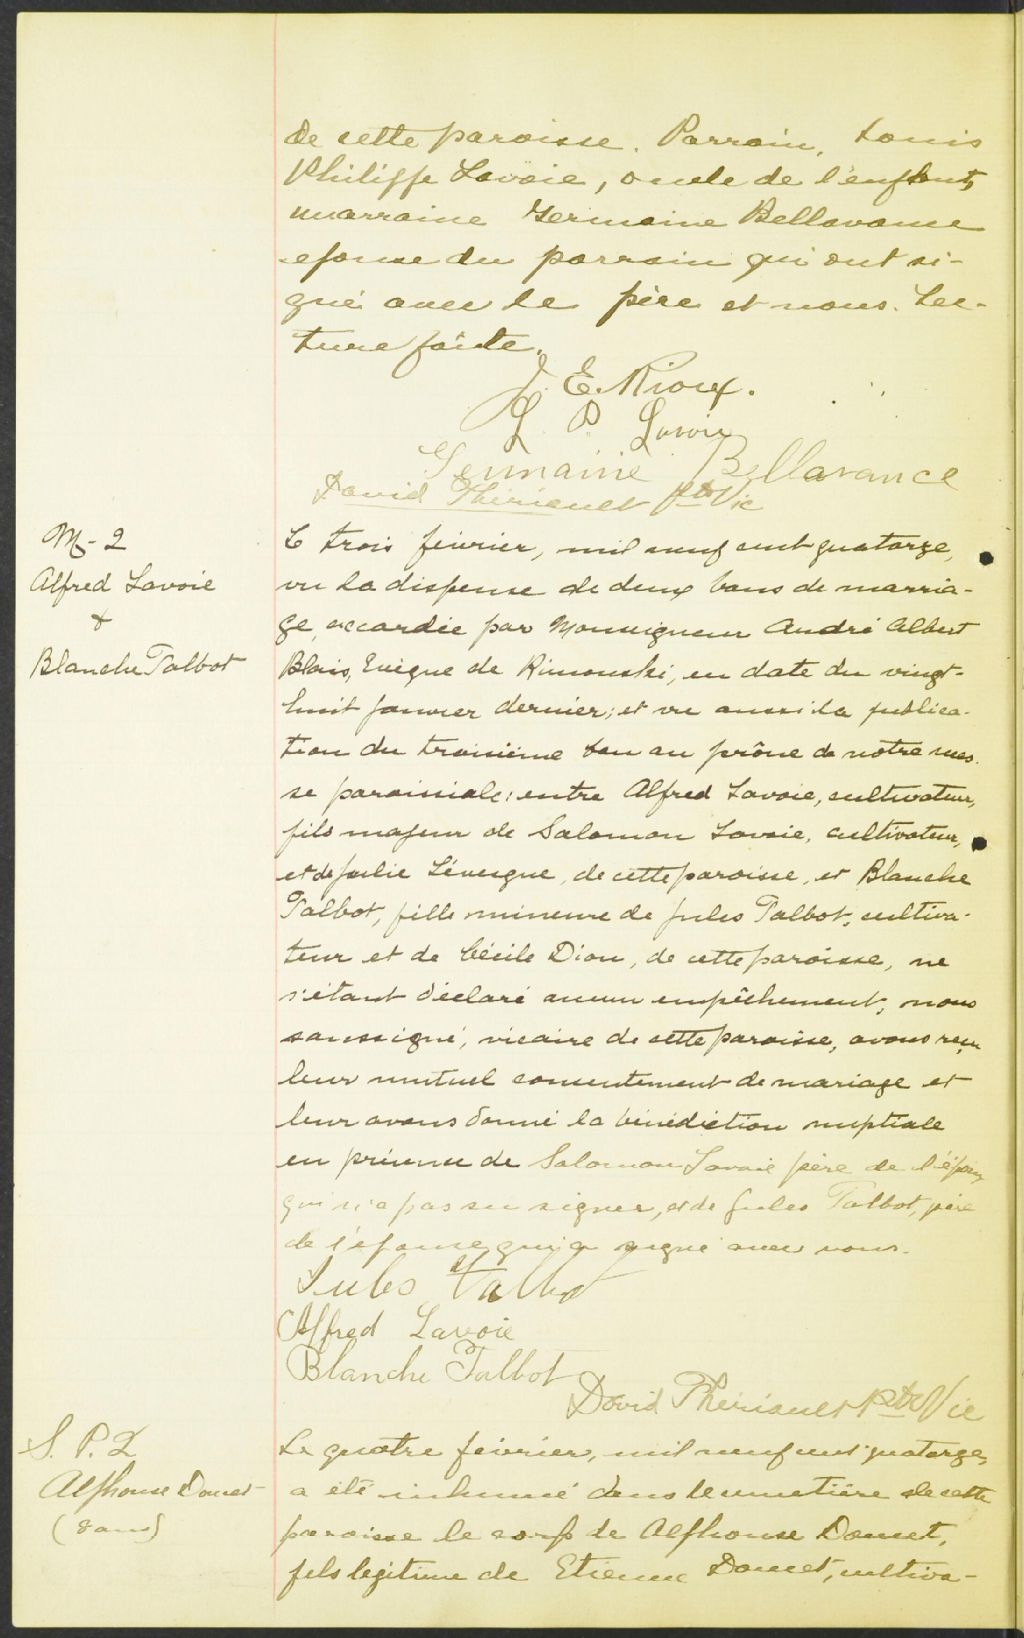 de cette paroisse. Parrain, Louis
Philippe Lavoie, oncle de l'enfant,
marraine Germaine Bellavance
epouse du parrain qui ont si-
gné avec le père et nous. Lec-
ture faite.
J. E. Rioux.
L. P. Lavoie
Germaine Bellavance
David Thériault Ptre Vic
M-2
Alfred Lavoie
&
Blanche Talbot
Le trois février, mil neuf cent quatorze,
vu la dispense de deux bans de marria-
ge accordée par Monseigneur André Albert
Blais, Evêque de Rimouski, en date du vingt-
huit janvier dernier; et vu aussi la publica-
tion du troisième ban au prône de notre mes-
se paroissiale; entre Alfred Lavoie, cultivateur,
fils majeur de Salomon Lavoie, cultivateur,
et de Julie Lévesque, de cette paroisse, et Blanche
Talbot, fille mineure de Jules Talbot, cultiva-
teur et de Cécile Dion, de cette paroisse, ne
s'étant déclaré aucun empêchement, nous
soussigné, vicaire de cette paroisse, avons reçu
leur mutuel consentement de mariage et
leur avons donné la bénédiction nuptiale
en présence de Salomon Lavoie père de l'époux
qui n'a pas su signer, et de Jules Talbot, père
de l'épouse qui a signé avec nous.
Jules Talbot
Alfred Lavoie
Blanche Talbot
David Thériault Ptre Vic
S. P. 2
Alphonse Doucet
(8 ans)
Le quatre février, mil neuf cent quatorze,
a été inhumé dans le cimetière de cette
paroisse le corps de Alphonse Doucet,
fils legitime de Etienne Doucet, cultiva-